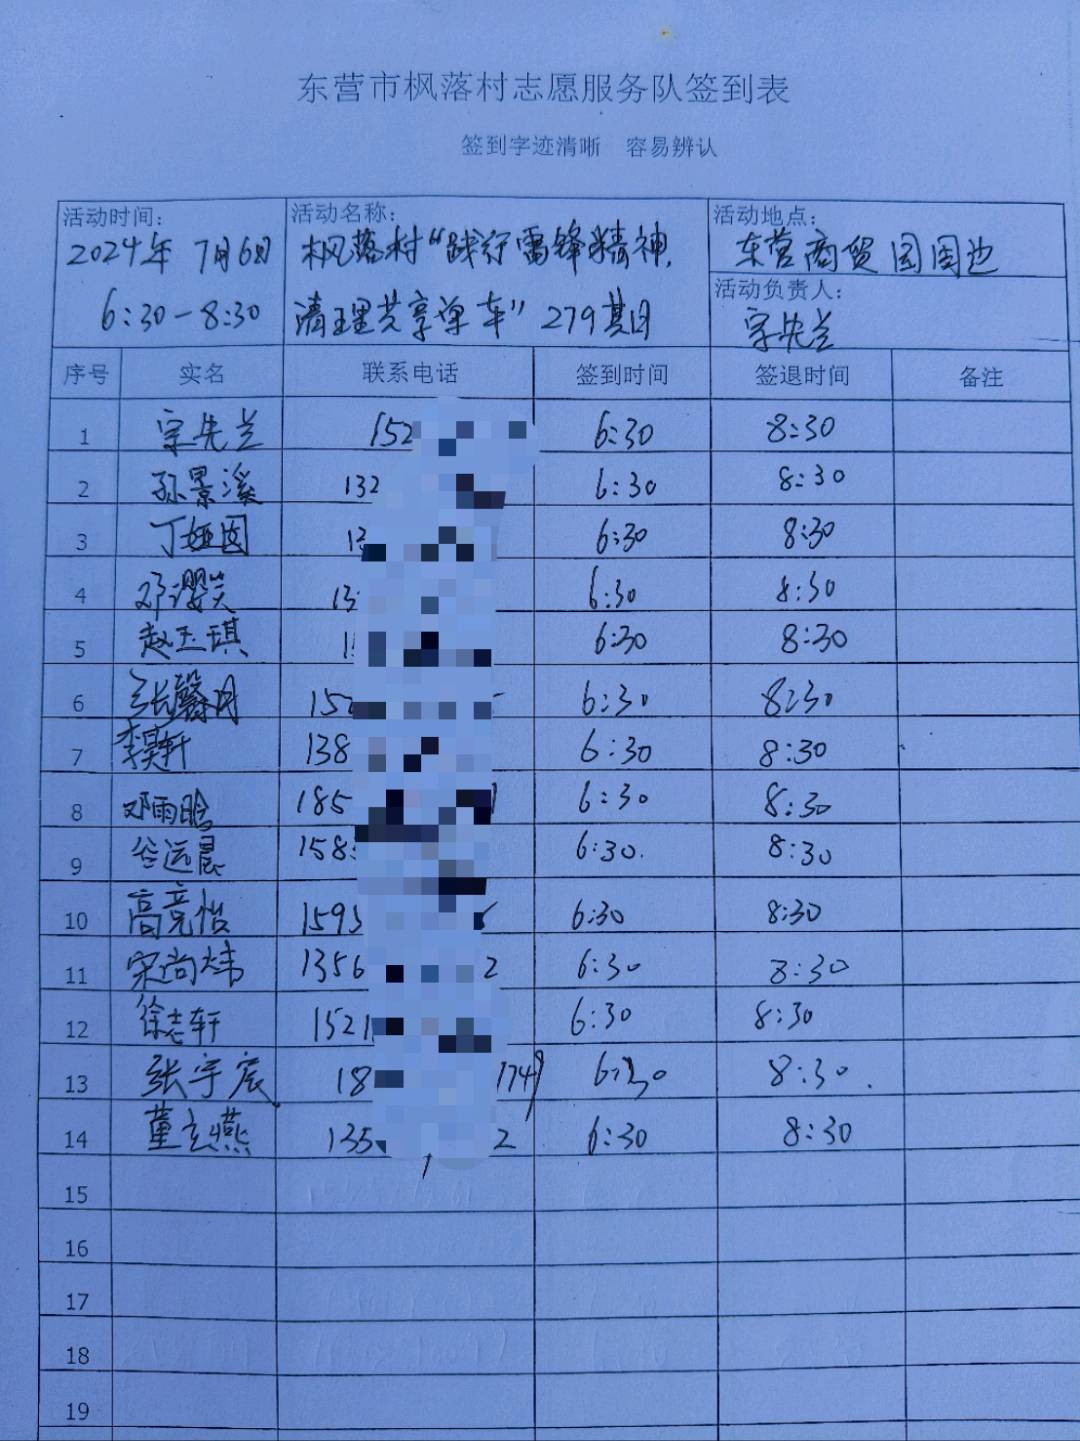 东营市枫落村志愿服务队签到表
签到字迹清晰 容易辨认
活动时间: 活动名称: 活动地点:
2024年7月6日 枫落村“践行雷锋精神, 东营商贸园周边
6:30-8:30 清理共享单车”279期 活动负责人:
宗先兰
序号 实名 联系电话 签到时间 签退时间 备注
1 宗先兰 152 6:30 8:30
2 孙景溪 132 6:30 8:30
3 丁娅茵 13 6:30 8:30
4 邓 13 6:30 8:30
5 赵玉琪 1 6:30 8:30
6 张馨月 152 6:30 8:30
7 李昊轩 138 6:30 8:30
8 邓雨晗 185 6:30 8:30
9 岳远晨 158 6:30. 8:30
10 高竞怡 1595 6:30 8:30
11 宋尚炜 1356 2 6:30 8:30
12 徐志轩 1521 6:30 8:30
13 张宇宸 18 174 6:30 8:30.
14 董玄燕 135 2 6:30 8:30
15
16
17
18
19